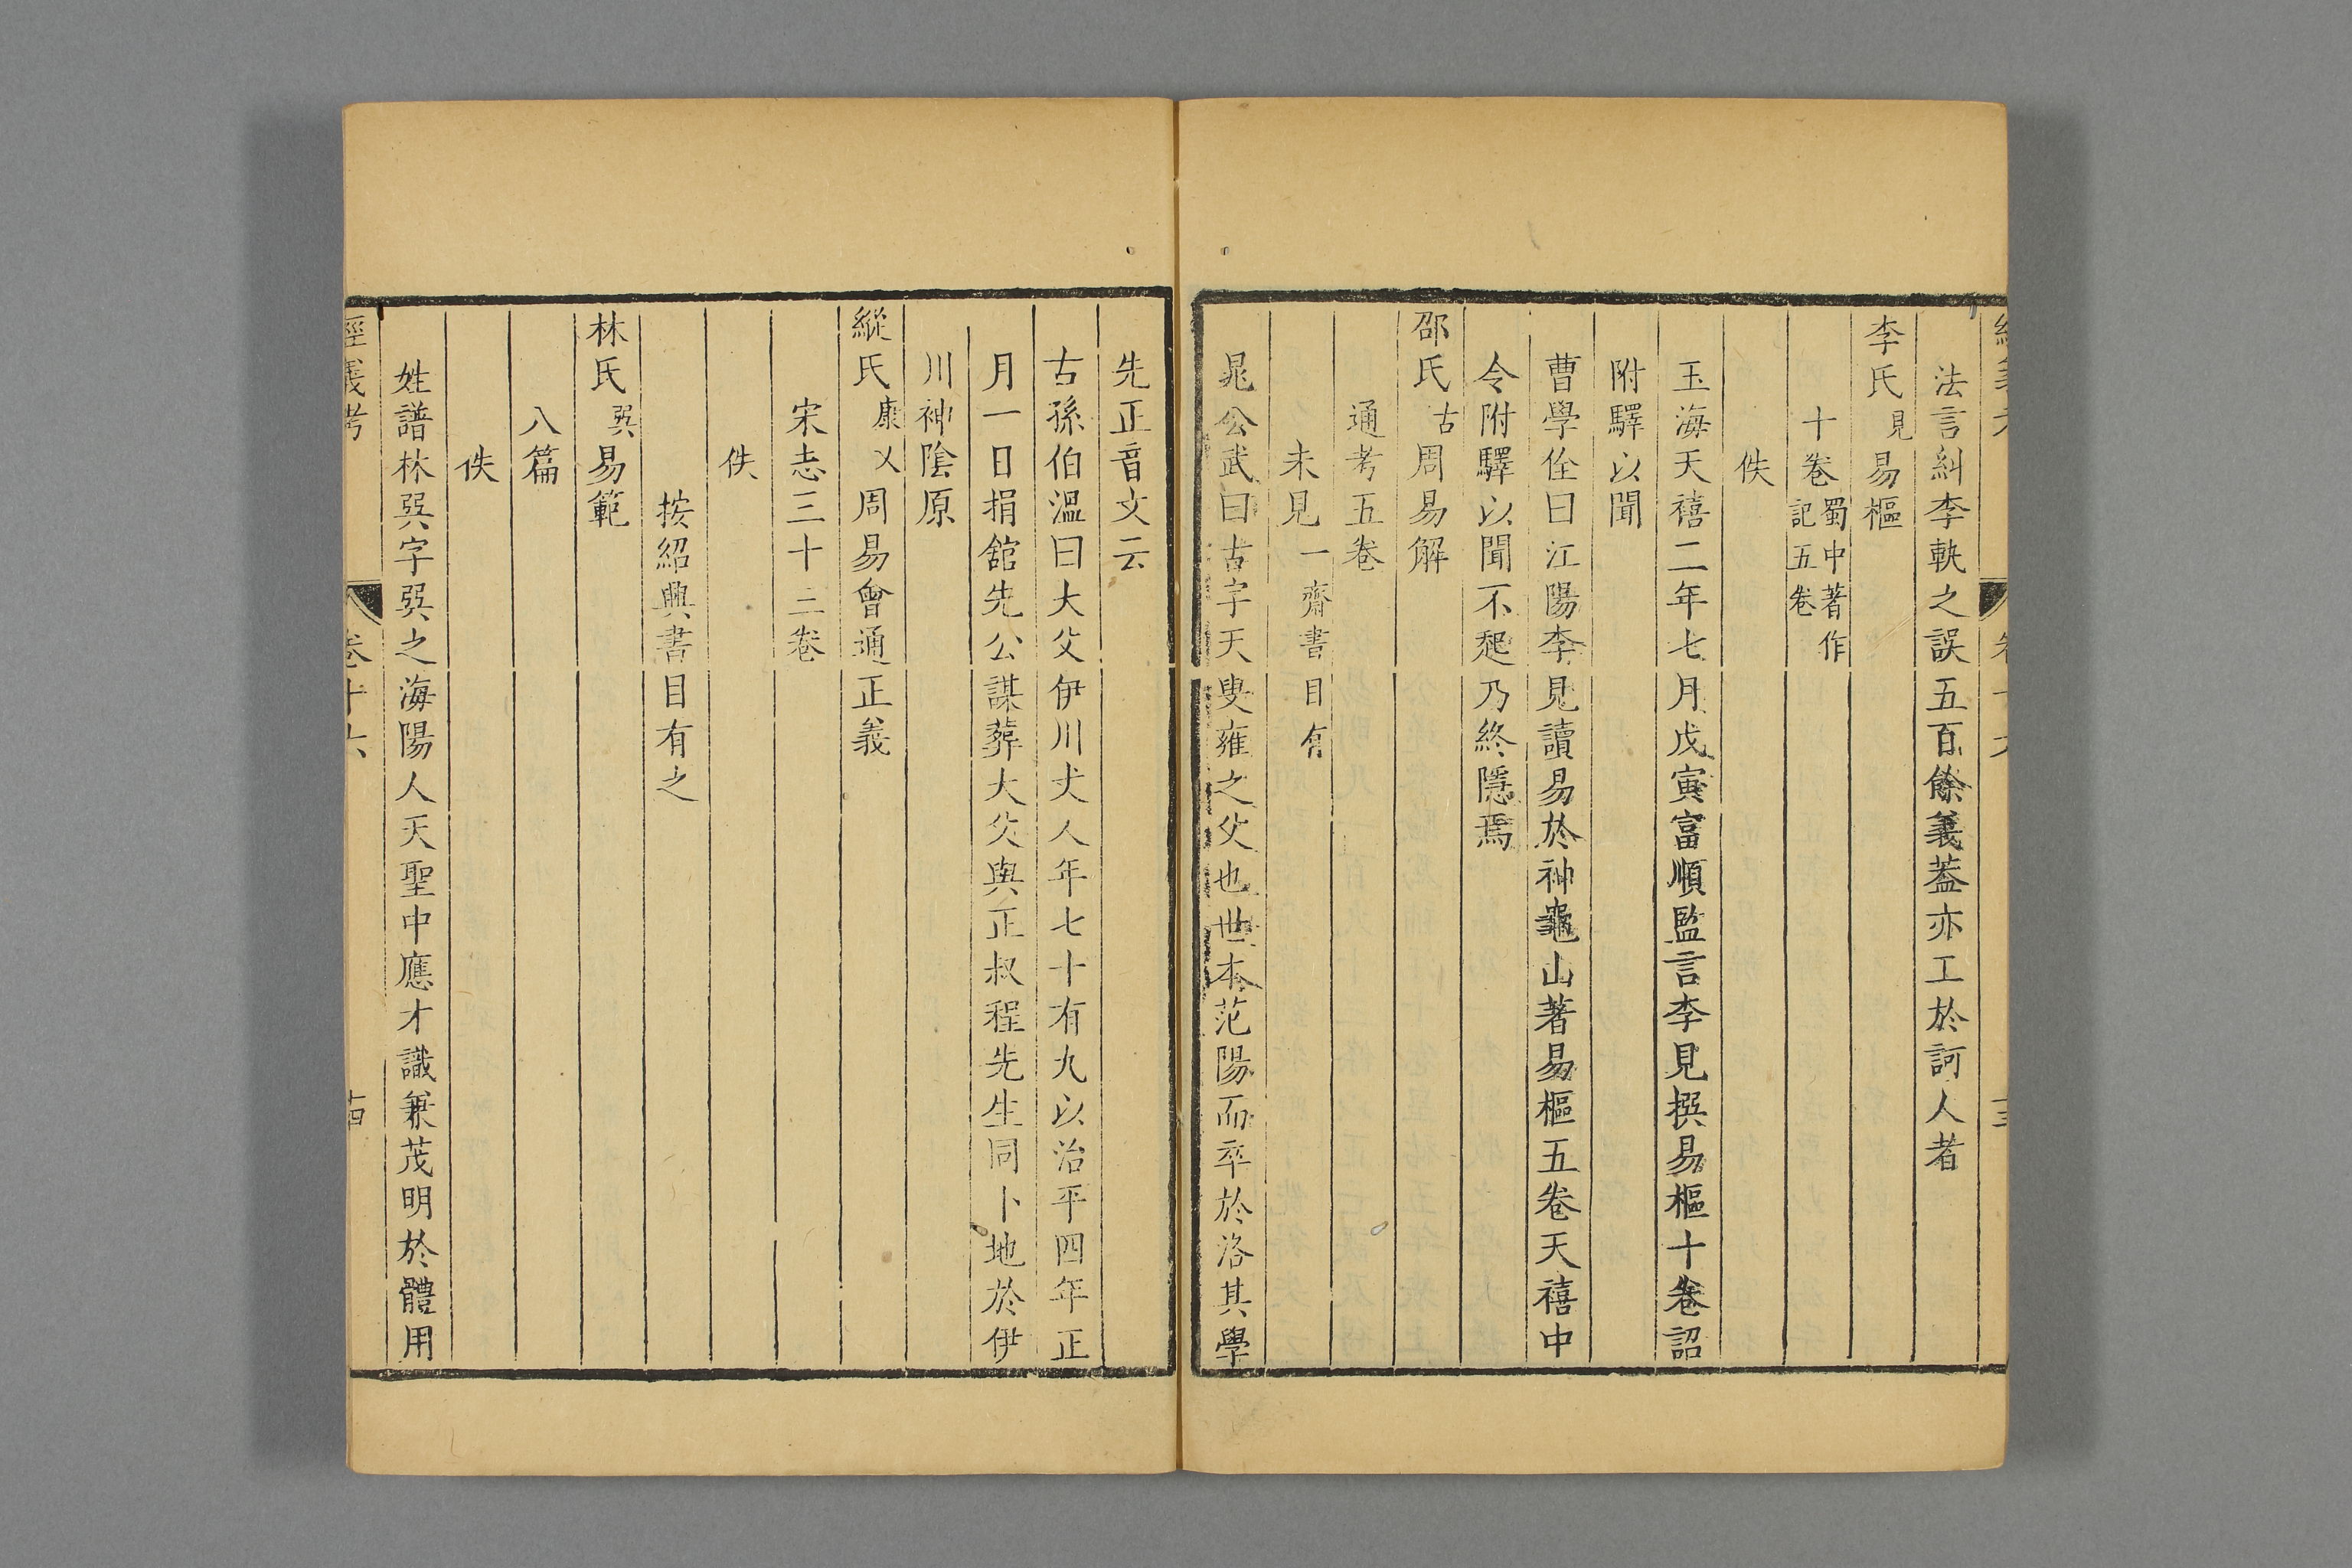 法言糾李軼之誤五百餘義蓋亦工於訶人者
李氏見易樞
十卷蜀中著作記五卷
佚
玉海天禧二年七月戊寅富順監言李見撰易樞十卷詔
附驛以聞
曹學佺曰江陽李見讀易於神龜山著易樞五卷天禧中
令附驛以聞不起乃終隱焉
邵氏古周易解
通考五卷
未見一齋書目有
晁公武曰古字天叟雍之父也世本范陽而卒於洛其學
先正音文云
古孫伯溫曰大父伊川丈人年七十有九以治平四年正
月一日捐舘先公謀葬大父與正叔程先生同卜地於伊
川神陰原
縱氏康乂周易會通正義
宋志三十三卷
佚
按紹興書目有之
林氏巽易範
八篇
佚
姓譜林巽字巽之海陽人天聖中應才識兼茂明於體用
經義考
卷十六
十四